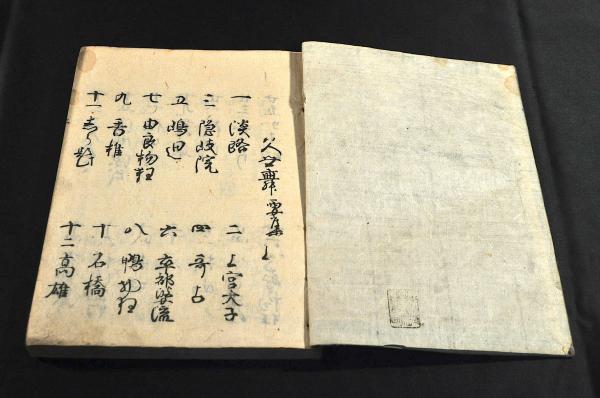 久世舞要集 上
一 淡路 二 上宮太子
三 隠岐院 四 哥占
五 嶋廻 六 卒都婆流
七 由良物狂 八 鴨物狂
九 香椎 十 石橋
十一 十二 高雄